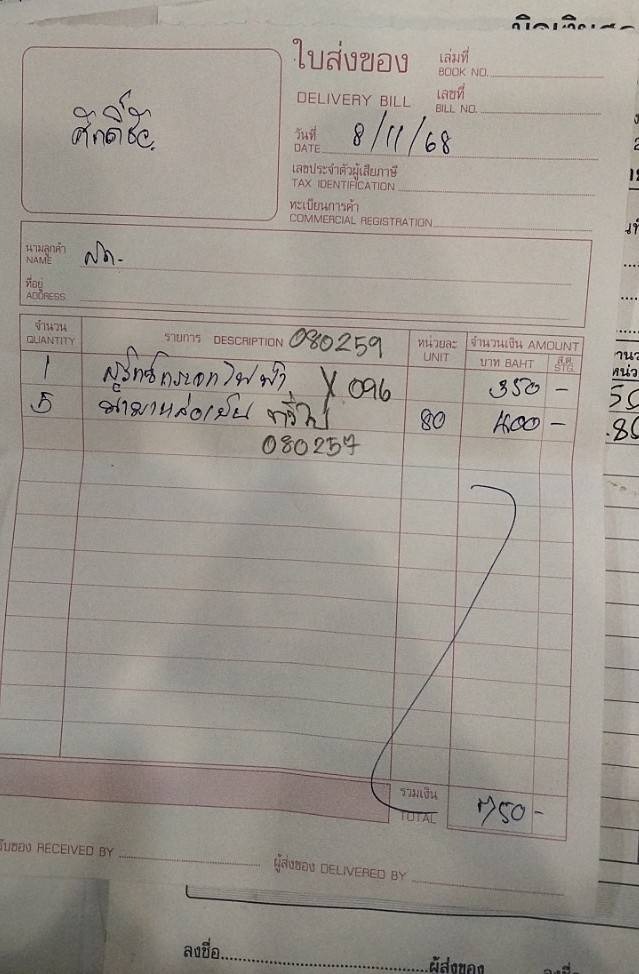 ใบส่งของ
เล่มที่
BOOK NO.
DELIVERY BILL
เลขที่
BILL NO.
ศักดิ์ชัย
วันที่
DATE 8/11/68
เลขประจำตัวผู้เสียภาษี
TAX IDENTIFICATION
ทะเบียนการค้า
COMMERCIAL REGISTRATION
นามลูกค้า
NAME สด-
ที่อยู่
ADDRESS
จำนวน
QUANTITY
รายการ DESCRIPTION 080259
หน่วยละ
UNIT
จำนวนเงิน AMOUNT
บาท BAHT
ส.ต.
STG.
1 สวิทช์กระจกไฟฟ้า X 096 350 -
5 น้ำยาหล่อเย็น 80 400 -
080257
รวมเงิน
TOTAL 750-
RECEIVED BY
ผู้ส่งของ DELIVERED BY
ลงชื่อ
ผู้ส่งของ